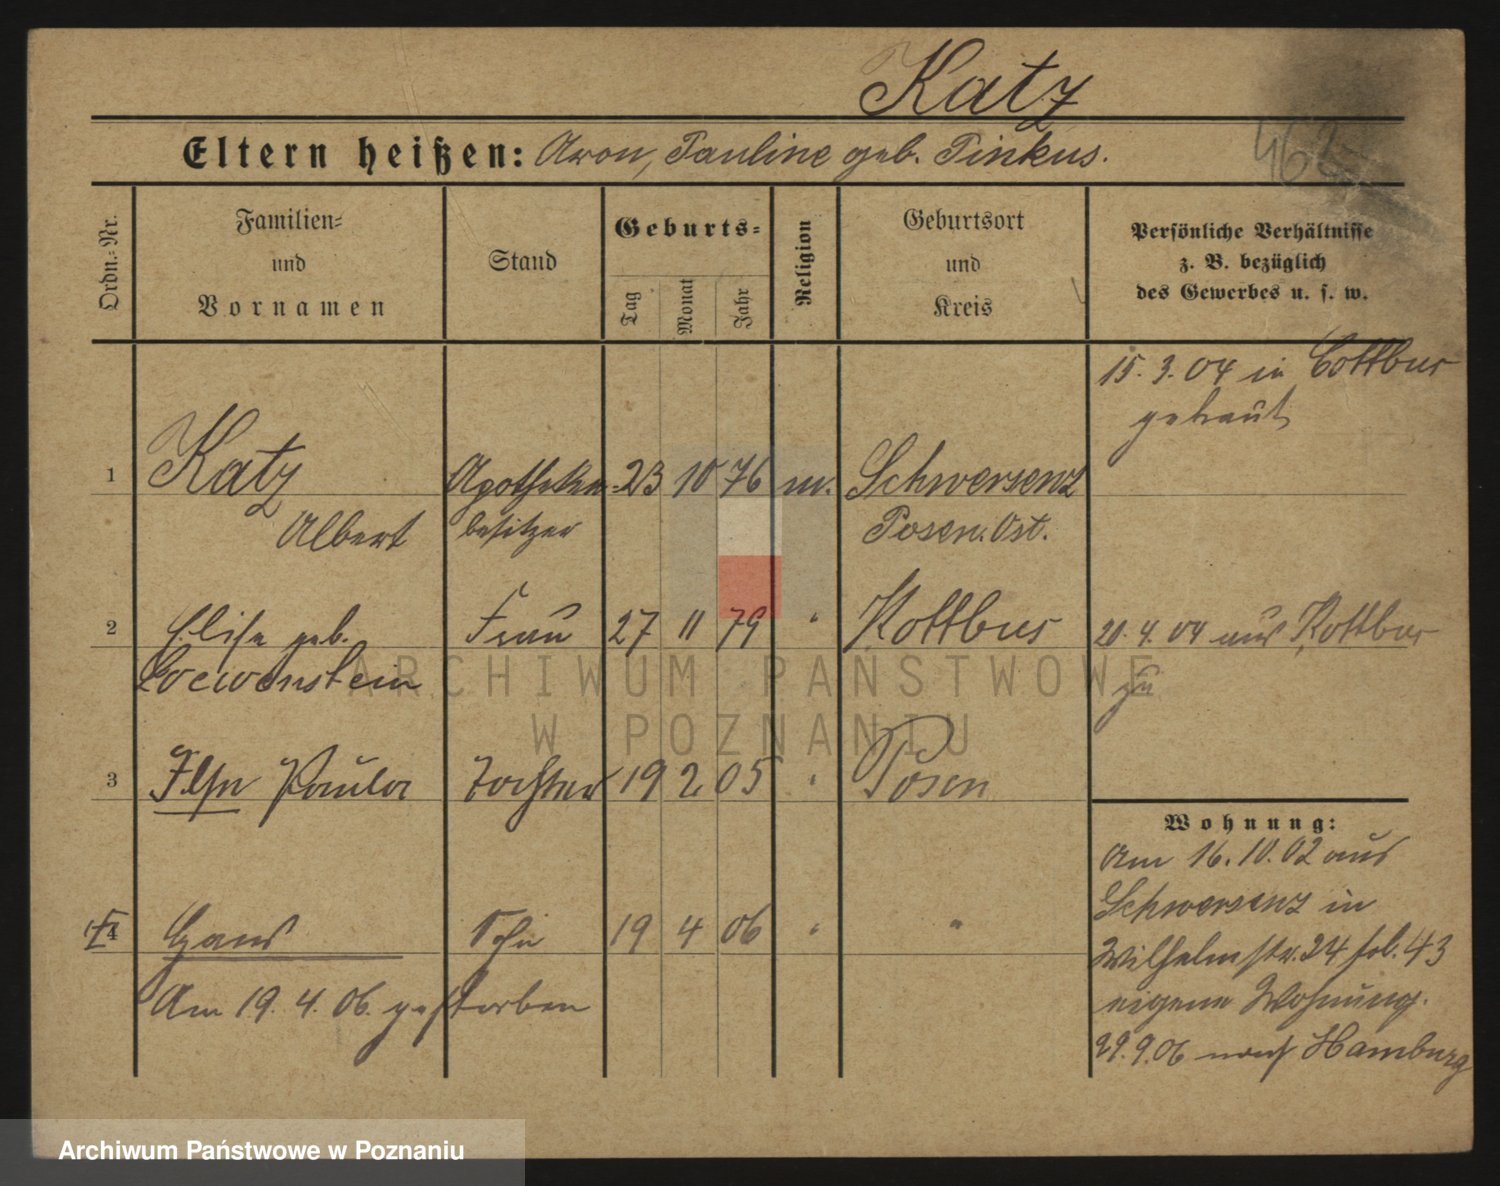 Katz
Eltern heißen: Aron, Pauline geb. Pinkus.
462
Ordn.-Nr.
Familien-
und
Vornamen
Stand
Geburts-
Tag
Monat
Jahr
Religion
Geburtsort
und
Kreis
Persönliche Verhältnisse
z. B. bezüglich
des Gewerbes u. s. w.
15. 3. 04 in Cottbus
getraut
1 Katz Apotheken- 23 10 76 m. Schwersenz
Albert besitzer Posen. Ost.
2 Elise geb. Frau 27 11 79 " Kottbus 20. 4. 04 aus Kottbus
Loewenstein zu
ARCHIWUM PAŃSTWOWE
W POZNANIU
3 Ilse Paula Tochter 19 2 05 " Posen
Wohnung:
Am 16. 10. 02 aus
Schwersenz in
Wilhelmstr. 24 bei 43
eigene Wohnung.
29. 9. 06 nach Hamburg
4 Hans Sohn 19 4 06 " "
Am 19. 4. 06. gestorben
Archiwum Państwowe w Poznaniu